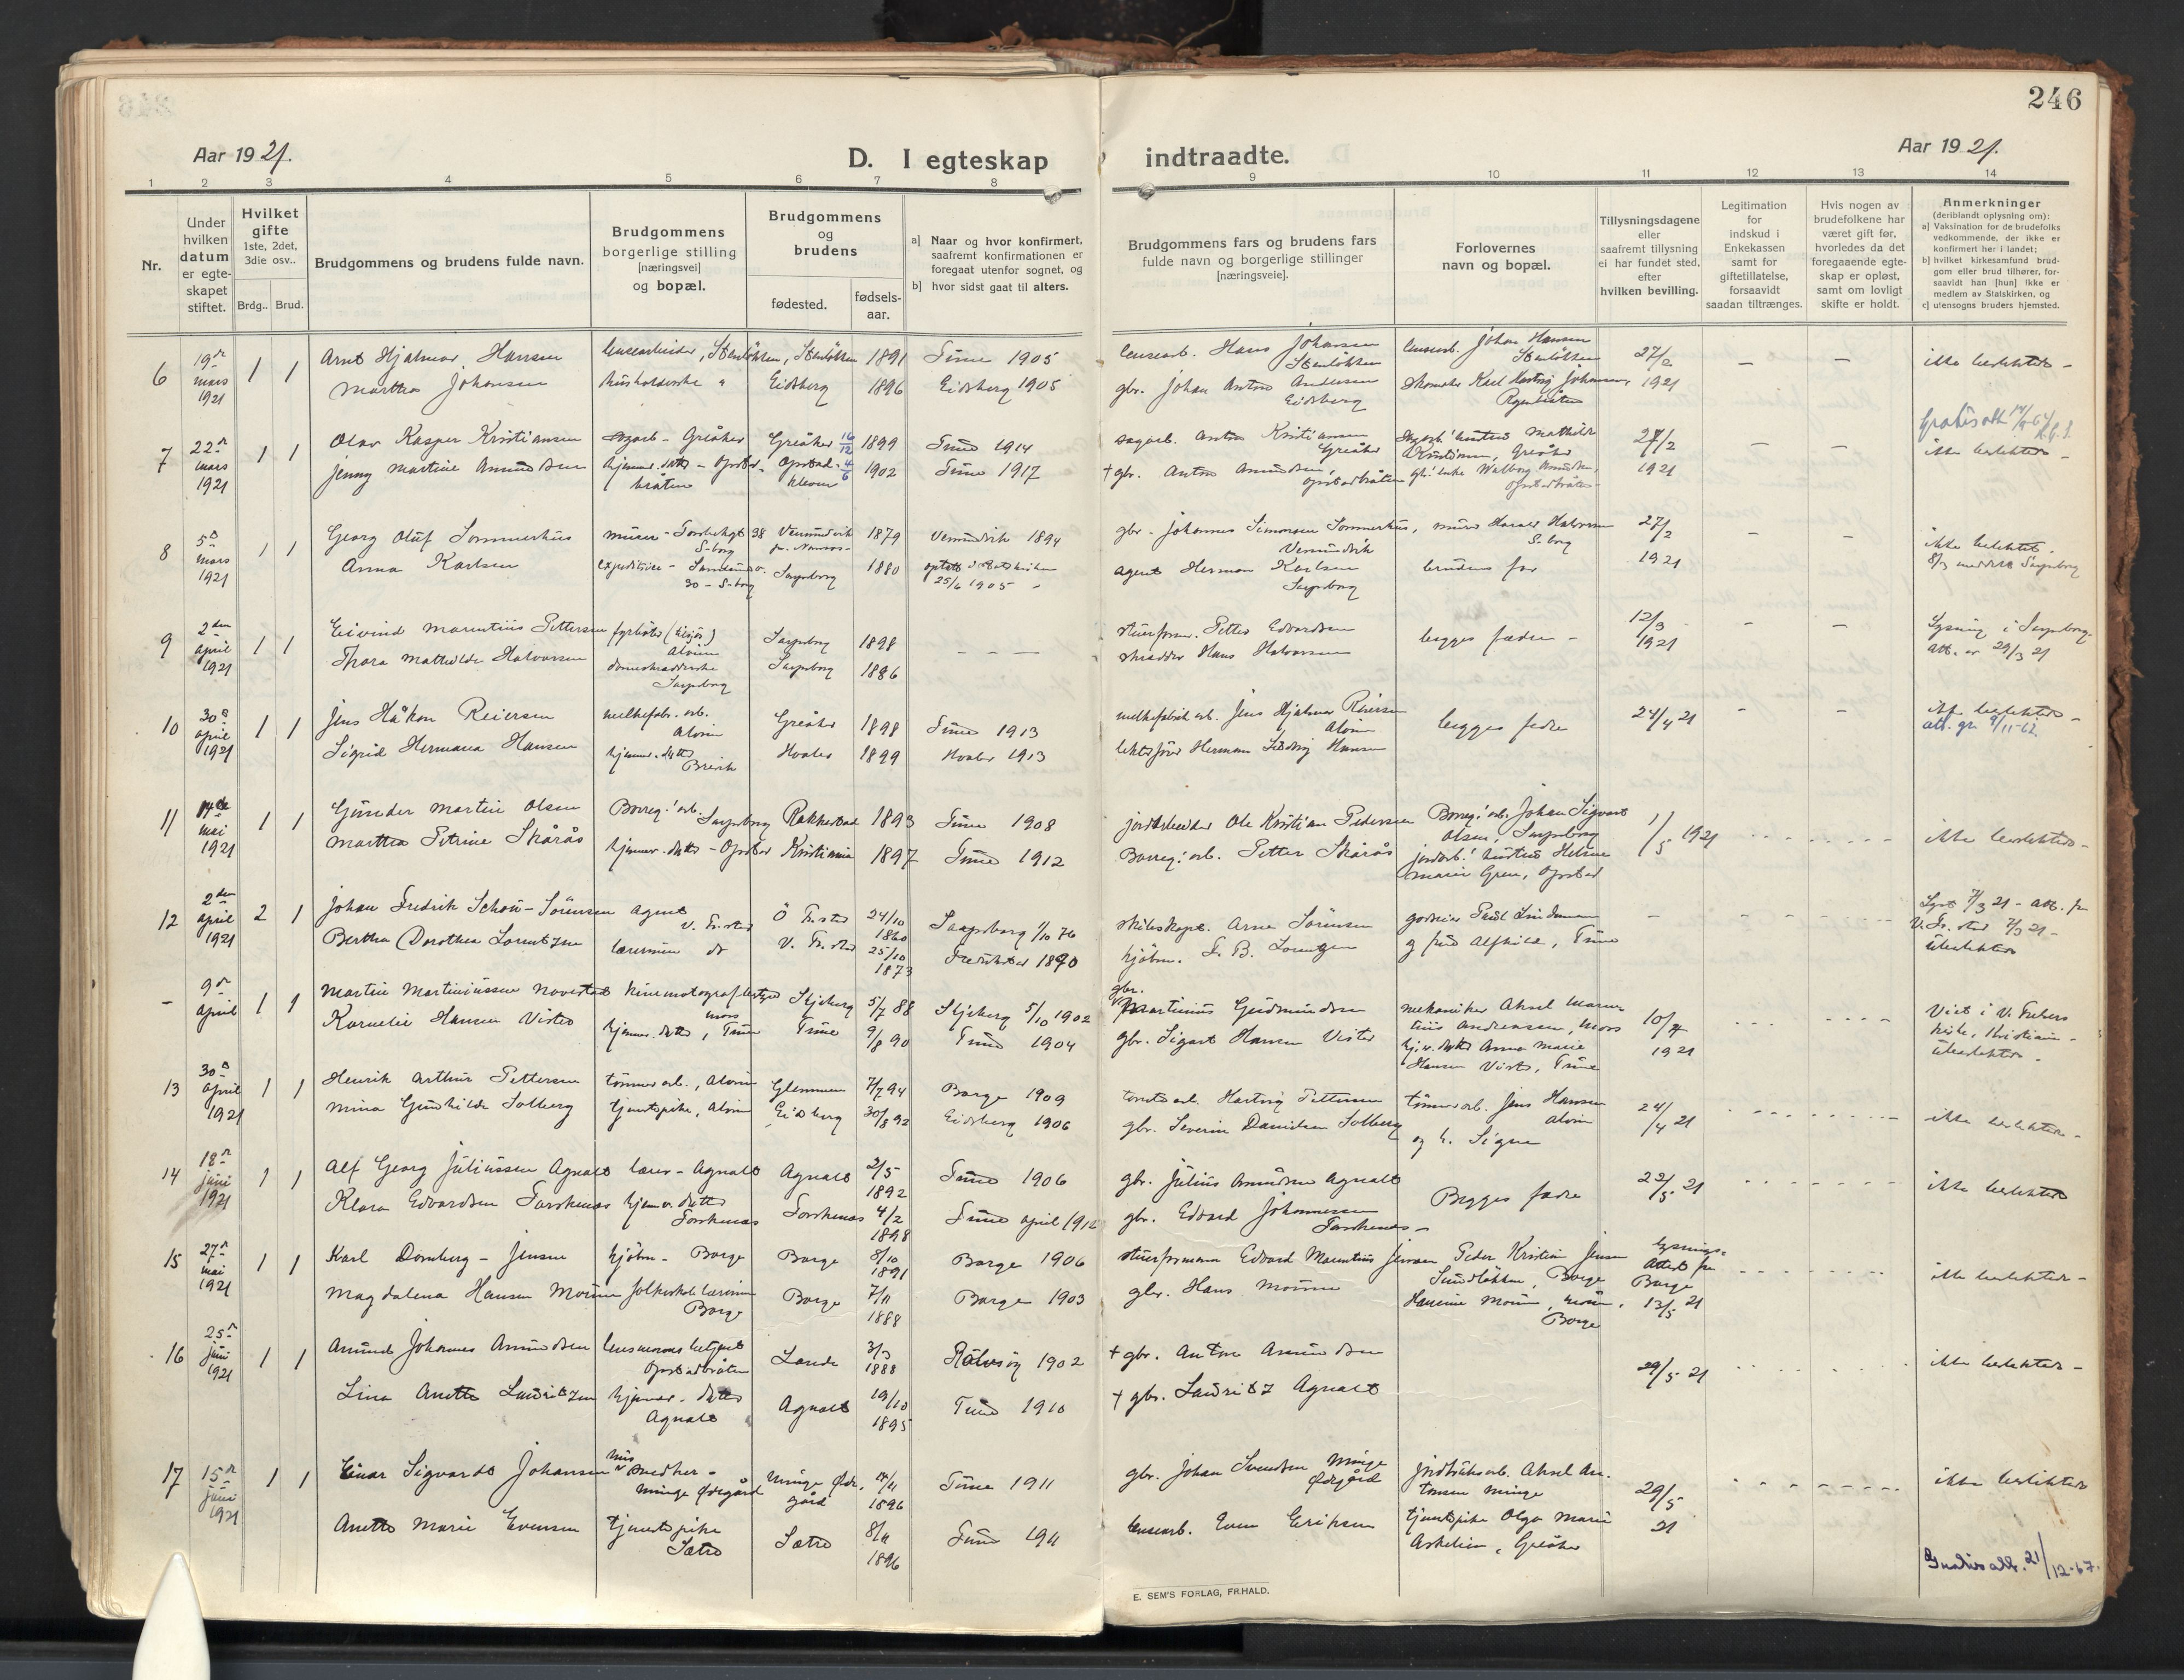 246
Aar 1921.
D. I egteskap indtraadte.
Aar 1921.
1 2 3 4 5 6 7 8 9 10 11 12 13 14
Nr.
Under hvilken datum er egte-skapet stiftet.
Hvilket gifte
1ste, 2det, 3die osv..
Brdg.. Brud.
Brudgommens og brudens fulde navn.
Brudgommens borgerlige stilling [næringsvei] og bopæl.
Brudgommens og brudens
fødested.
fødsels-aar.
a] Naar og hvor konfirmert, saafremt konfirmationen er foregaat utenfor sognet, og
b] hvor sidst gaat til alters.
Brudgommens fars og brudens fars fulde navn og borgerlige stillinger [næringsveie].
Forlovernes navn og bopæl.
Tillysningsdagene eller saafremt tillysning ei har fundet sted, efter hvilken bevilling.
Legitimation for indskud i Enkekassen samt for giftetillatelse, forsaavidt saadan tiltrænges.
Hvis nogen av brudefolkene har været gift før, hvorledes da det foregaaende egte-skap er opløst, samt om lovlig skifte er holdt.
Anmerkninger
(deriblandt oplysning om):
a] Vaksination for de brudefolks vedkommende, der ikke er konfirmert her i landet;
b] hvilket kirkesamfund brud-gom eller brud tilhører, for-saavidt han [hun] ikke er medlem av Statskirken, og
c] utensogns bruders hjemsted.
6 19de mars 1921 1 1 Arnt Hjalmar Hansen 1891 Tune 1905 lensearb. Hans Johansen 27/2 1921 — — ikke beslektede -
Martha Johansen husholderske " Eidsberg 1896 Eidsberg 1905 gbr. Johan Anton Andersen Eidsberg
7 22de mars 1921 1 1 Olav Kasper Kristiansen Greåker Greåker 16/12 1899 Tune 1914 sagarb. Anton Kristiansen Greåker 27/2 1921 ikke beslektede -
Jenny Martine Amundsen hjemmev. datter - Opstad-bråten Opstad 4/6 1902 Tune 1917 + gbr. Anton Amundsen, Opstadbråten
8 5te mars 1921 1 1 Georg Oluf Sommerhus murer 38 S-borg Vemundvik 1879 Vemundvik 1894 gbr. Johannes Simonsen Sommerhus, Vemundvik murer Harald Halvorsen S-borg 27/2 1921 ikke beslektet.
Anna Karlsen 30 - S-borg Sarpsborg 1880 25/6 1905 agent Herman Karlsen Sarpsborg brudens far
9 2den april 1921 1 1 Eivind Marentius Pettersen fyrbøter Alvim Sarpsborg 1898 — — — Petter Edvardsen begges fædre - 12/3 1921 Lysning i Sarpsborg. att. av 29/3 21
Thora Mathilde Halvorsen Sarpsborg Sarpsborg 1886 skrædder Hans Halvorsen
10 30te april 1921 1 1 Jens Håkon Reiersen melkefabr. arb. Alvim Greåker 1898 Tune 1913 melkefabrik arb. Jens Hjalmar Reiersen Alvim begges fedre 24/4 21 ikke beslektede -
att. gr. 9/11-62.
Sigrid Hermana Hansen hjemmev. datter Brevik Hvaler 1899 Hvaler 1913 Herman Ludvig Hansen
11 14de mai 1921 1 1 Gunder Martin Olsen Borreg. arb. Sarpsborg Rakkestad 1893 Tune 1908 jordarbeider Ole Kristian Pedersen Borreg. arb. Johan Sigvart Olsen, Sarpsborg 1/5 1921 ikke beslektede -
Marthea Petrine Skårås hjemmev. datter - Opstad Kristiania 1897 Tune 1912 Borreg. arb. Petter Skårås
12 2den april 1921 2 1 Johan Fredrik Schou-Sørensen agent V. Fr.stad Ö Fr.stad 24/10 1860 Sarpsborg 1/10 76 skibskapt. Arne Sørensen godseier Paul Lindeman og fru Alfhild, Tune — Lyst 7/3 21 - att. fra V. Fr.stad 7/3 21 - ubeslektede
Bertha Dorothea Lorentzen lærerinne do V. Fr.stad 25/10 1873 Fredrikstad 1890 kjøbm. F. B. Lorentzen
- 9de april 1 1 Martin Martiniussen Navestad Moss Skjeberg 5/7 88 Skjeberg 5/10 1902 gbr. Martinius Gudmundsen mekaniker Aksel Maren-tius Andreassen, Moss 10/4 1921 Viet i V. Frelsers kirke, Kristiania - ubeslektede -
Kornelie Hansen Vister hjemmev. datter, Tune Tune 9/8 90 Tune 1904 gbr. Sigart Hansen Vister hj.v. datter Anna Marie Hansen Vister, Tune
13 30te april 1921 1 1 Henrik Arthur Pettersen tømmerarb., Alvim Glemmen 7/7 94 Borge 1909 Hartvig Pettersen tømmerarb. Jens Hansen Alvim og h. Signe 24/4 21 ikke beslektede -
Mina Gunhilde Solberg tjenestepike, Alvim Eidsberg 30/8 92 Eidsberg 1906 gbr. Severin Danielsen Solberg
14 18de juni 1921 1 1 Alf Georg Juliussen Agnalt lærer - Agnalt Agnalt 2/5 1892 Tune 1906 gbr. Julius Amundsen Agnalt Begges fædre 22/5 21 ikke beslektede
Klara Edvardsen Torskenes hjemmev. datter Torskenes Torskenes 4/2 1898 Tune april 1912 gbr. Edvard Johannessen Torskenes -
15 27de mai 1921 1 1 Karl Dornberg-Jensen kjøbm - Borge Borge 8/10 1891 Borge 1906 stuerformann Edvard Marentius Jensen Peder Kristian Jensen Sundløkken, Borge Lysnings-Attest fra Borge 13/5 21 ikke beslektede -
Magdalena Hansen Moum folkeskolelærerinne Borge Borge 7/11 1888 Borge 1903 gbr. Hans Moum Hansine Moum, Moum, Borge
16 25de juni 1921 1 1 Amund Johannes Amundsen lensmannsbetjent Opstadbråten Lande 3/3 1888 Rolvsøy 1902 + gbr. Anton Amundsen 29/5 21 ikke beslektede -
Lina Anette Lauritzen hjemmev. datter Agnalt Agnalt 19/10 1895 Tune 1910 + gbr. Lauritz Agnalt
17 15de juni 1921 1 1 Einar Sigvardt Johansen snedker - Minge Ødegård Minge Øde-gård 14/11 1896 Tune 1911 gbr. Johan Svendsen Minge Ødegård Aksel An-tonsen Minge 29/5 21 ikke beslektede
Anette Marie Evensen tjenestepike Sætre Sætre 8/11 1896 Tune 1911 lensearb. Even Eriksen tjenestepike Olga Marie Askelien, Greåker
Gratis att. 21/12-67.
E. SEM'S FORLAG, FR.HALD.